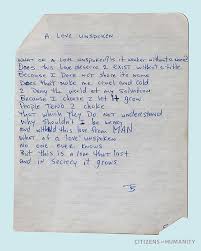 A LOVE UNSPOKEN
WHAT OF A LOVE UNSPOKEN? IS IT WEAKER WITHOUT A NAME?
Does this love deserve 2 exist without a title
Because I Dare not share its name
Does that make me cruel and cold
2 Deny the world of my salvation
Because I choose I let it grow
People tend 2 choke
That which they do not understand
Why shouldn't I be weary
and withhold this love from MAN
what of a love unspoken
no one ever knows
But this is a love that lasts
and in secrecy it grows
CITIZENS of HUMANITY